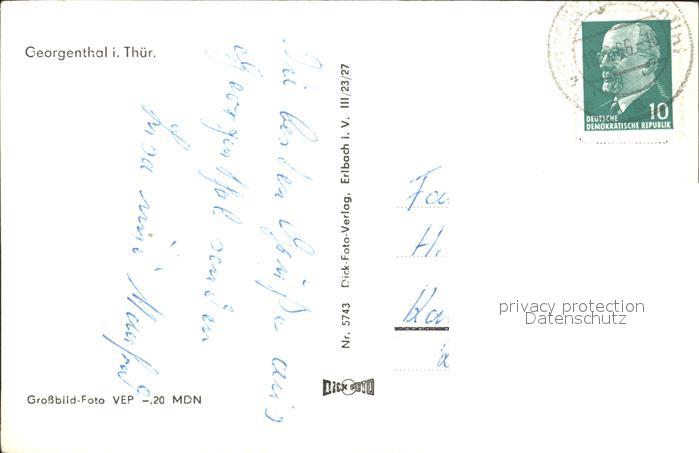 Georgenthal i. Thür.
Die besten Grüße aus
Georgenthal senden
Inga und Manfred
Großbild-Foto VEP -,20 MDN
Nr. 5743 Dick-Foto-Verlag, Erlbach i. V. III/23/27
DICK FOTO
DEUTSCHE
DEMOKRATISCHE REPUBLIK
10
Fa
H.
Ka
privacy protection
Datenschutz